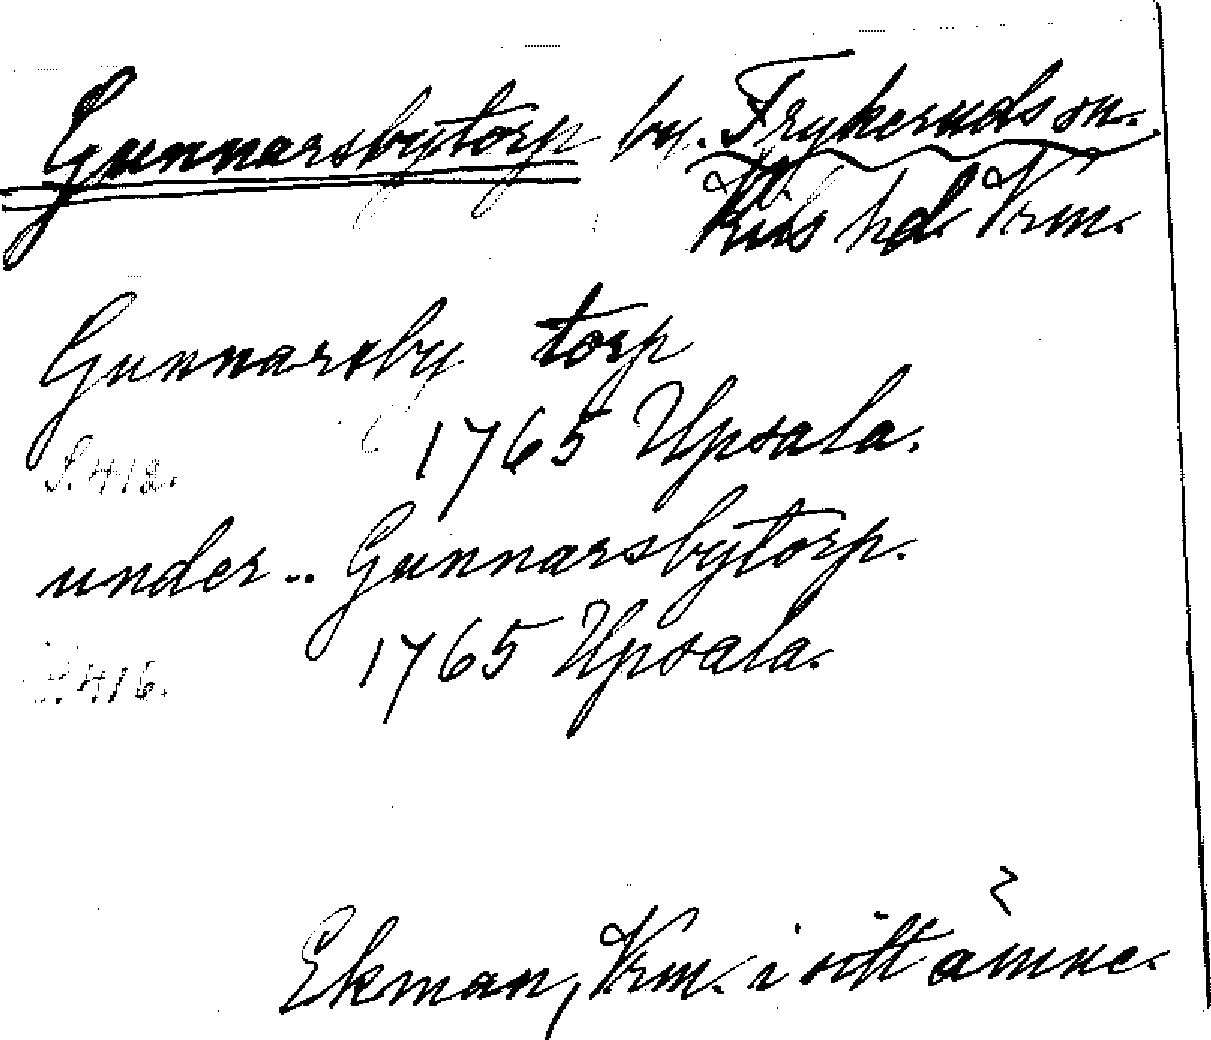 Gunnarsbytorp by. Frykeruds sn.
Kils hd. Vrm.
Gunnarsby torp
S. 412. 1765 Upsala.
under .. Gunnarsbytorp.
S. 416. 1765 Upsala.
Ekman, Vrm. i sitt ämne.